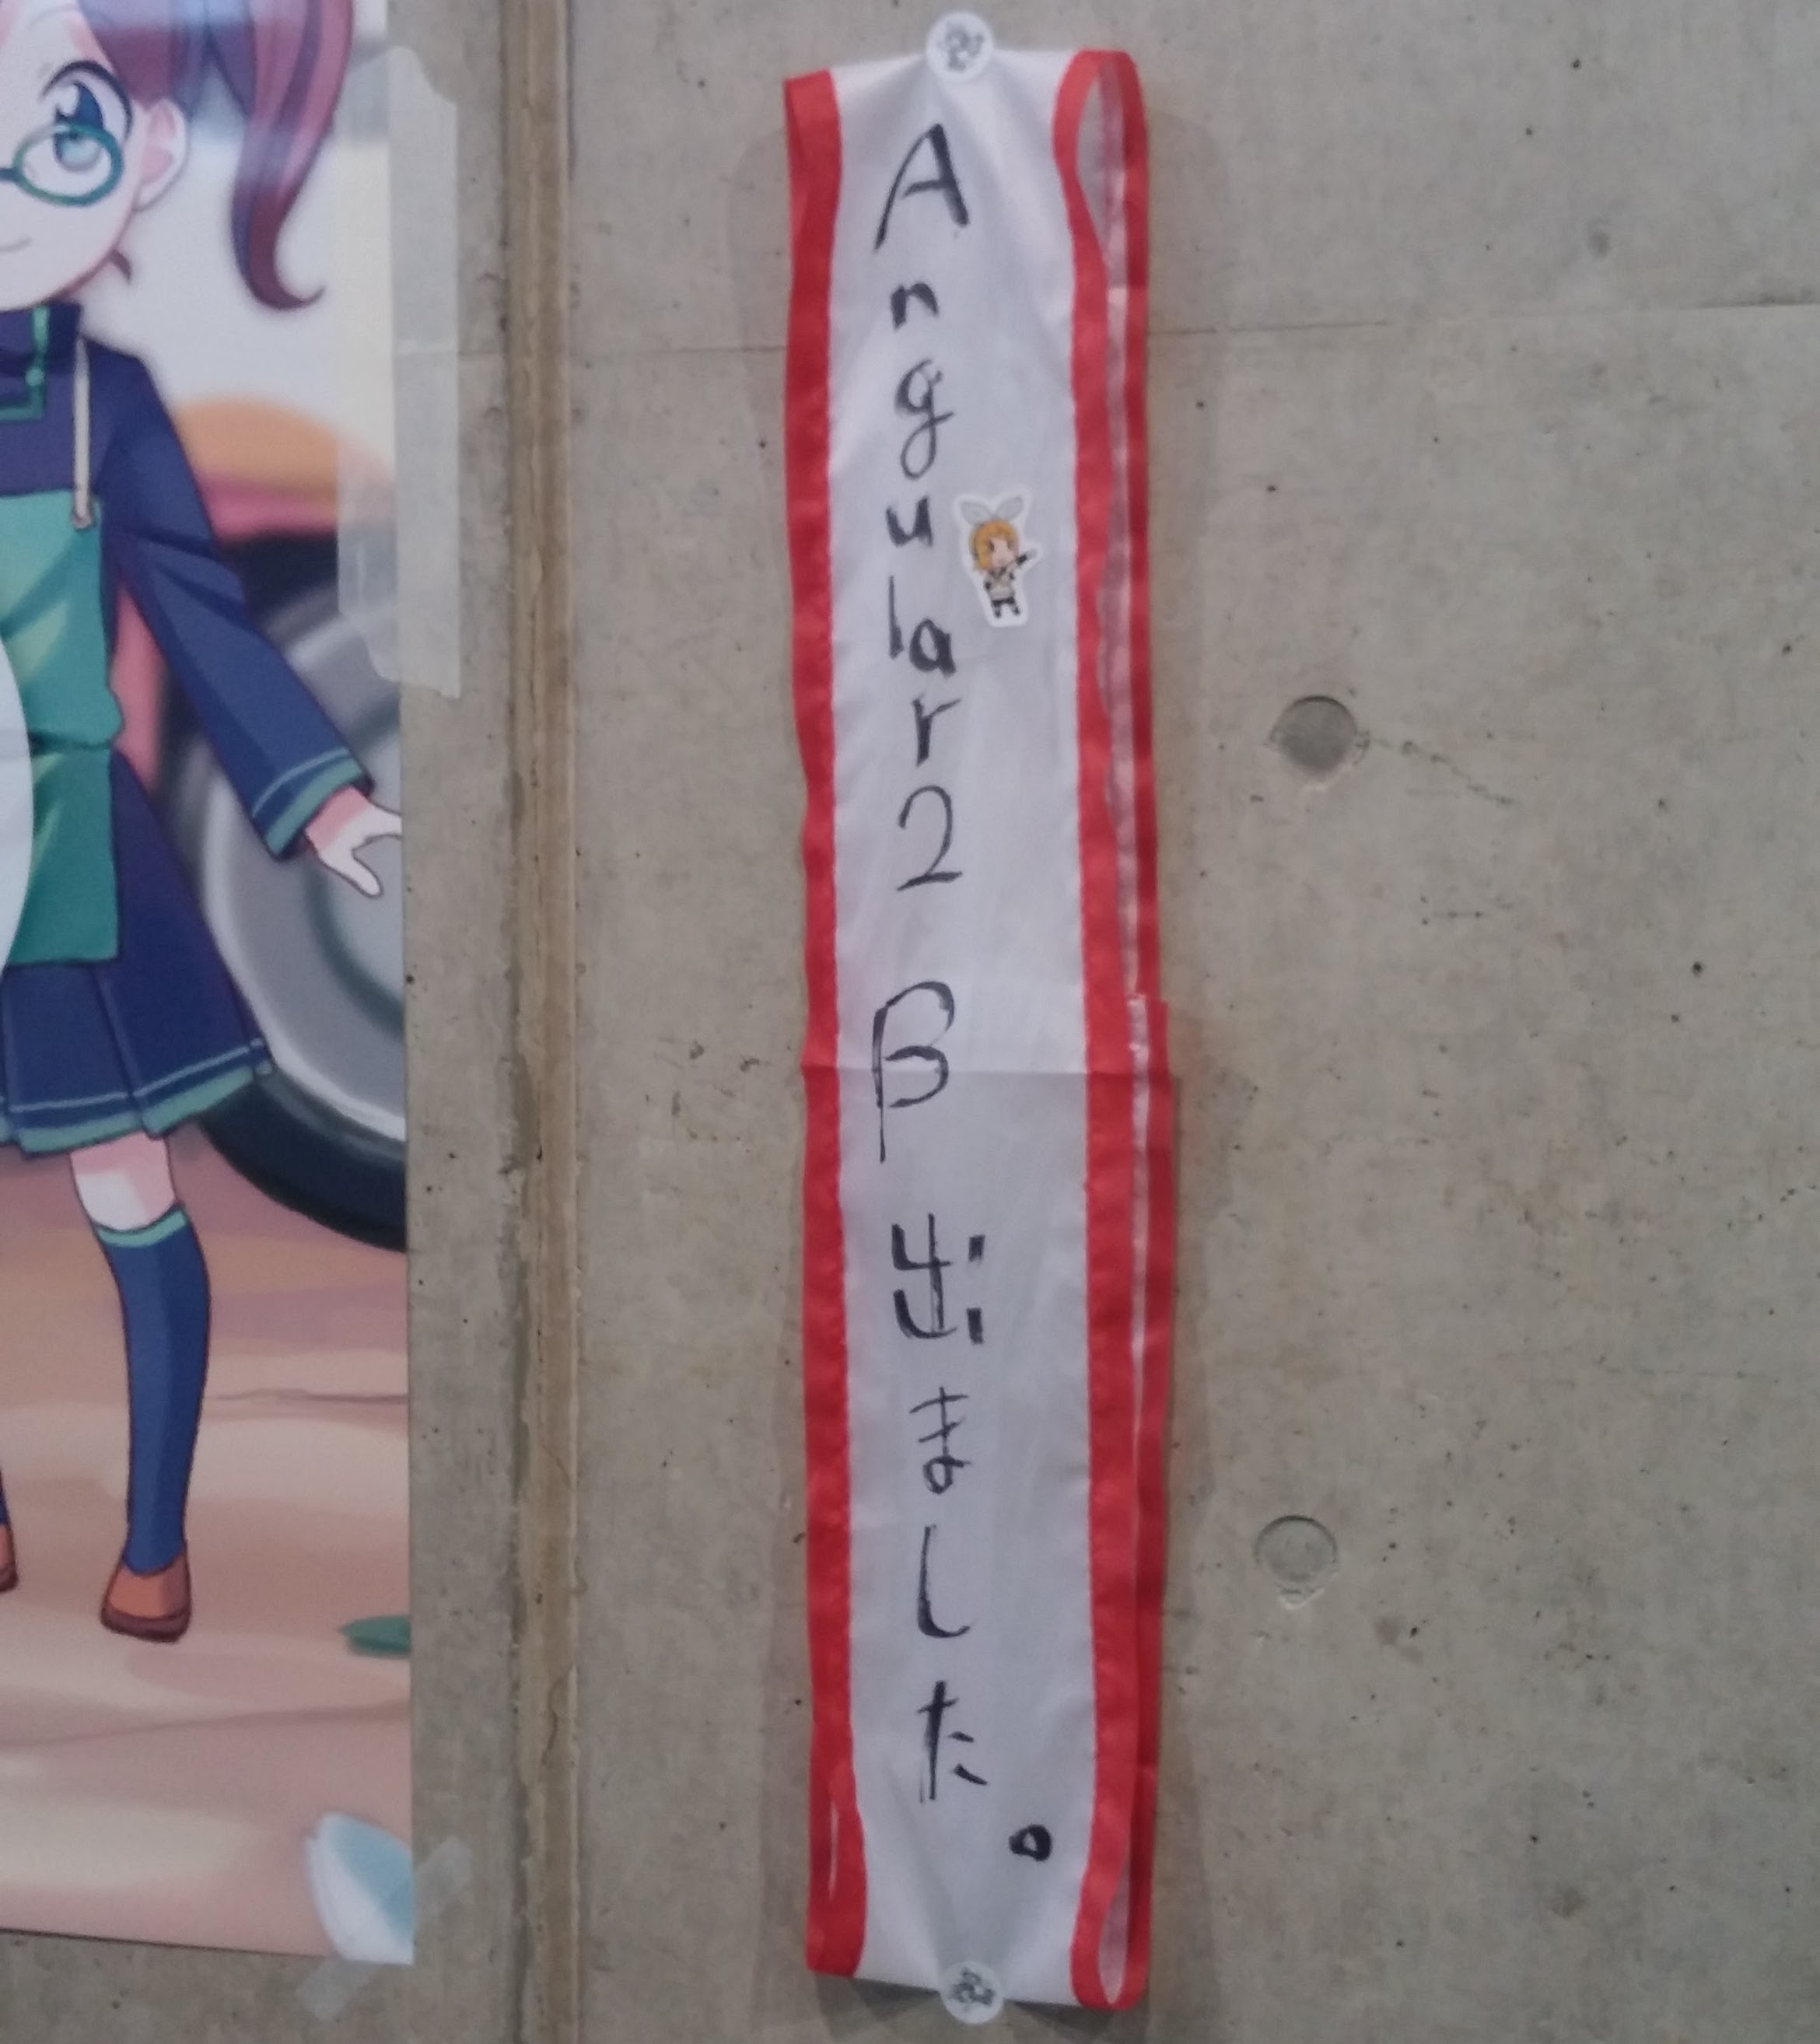 Angular2 β 出ました。